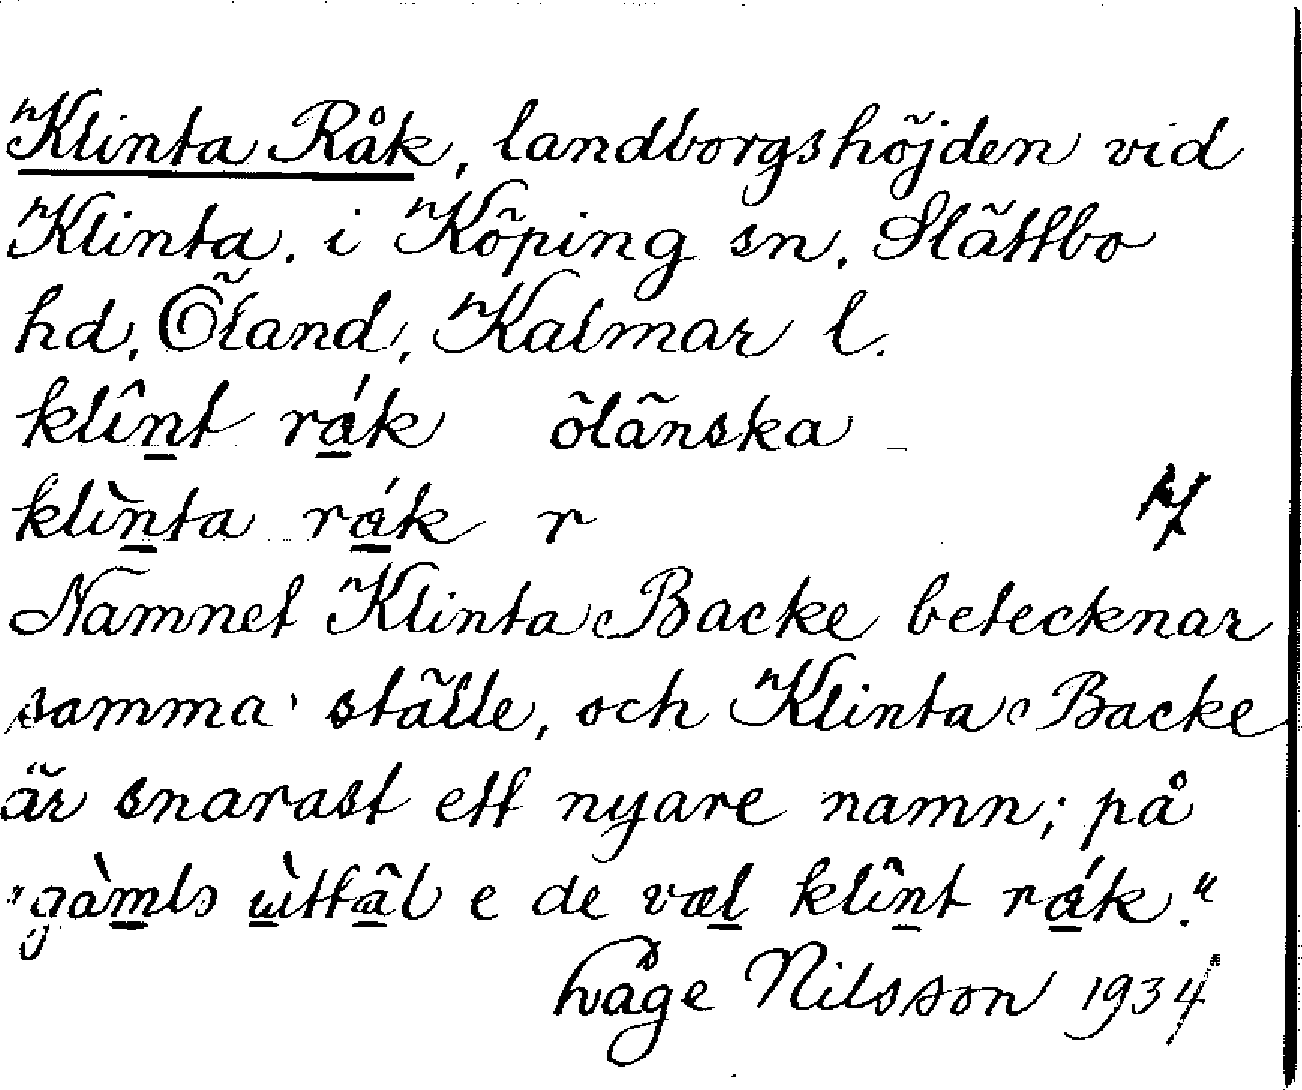 Klinta Råk, landborgshöjden vid
Klinta. i Köping sn. Slättbo
hd. Öland, Kalmar l.
klînt rák öländska
klìnta rák r
Namnet Klinta Backe betecknar
samma ställe, och Klinta Backe
är snarast ett nyare namn; på
"gàmls ùttâl e de væl klînt rák."
Håge Nilsson 1934